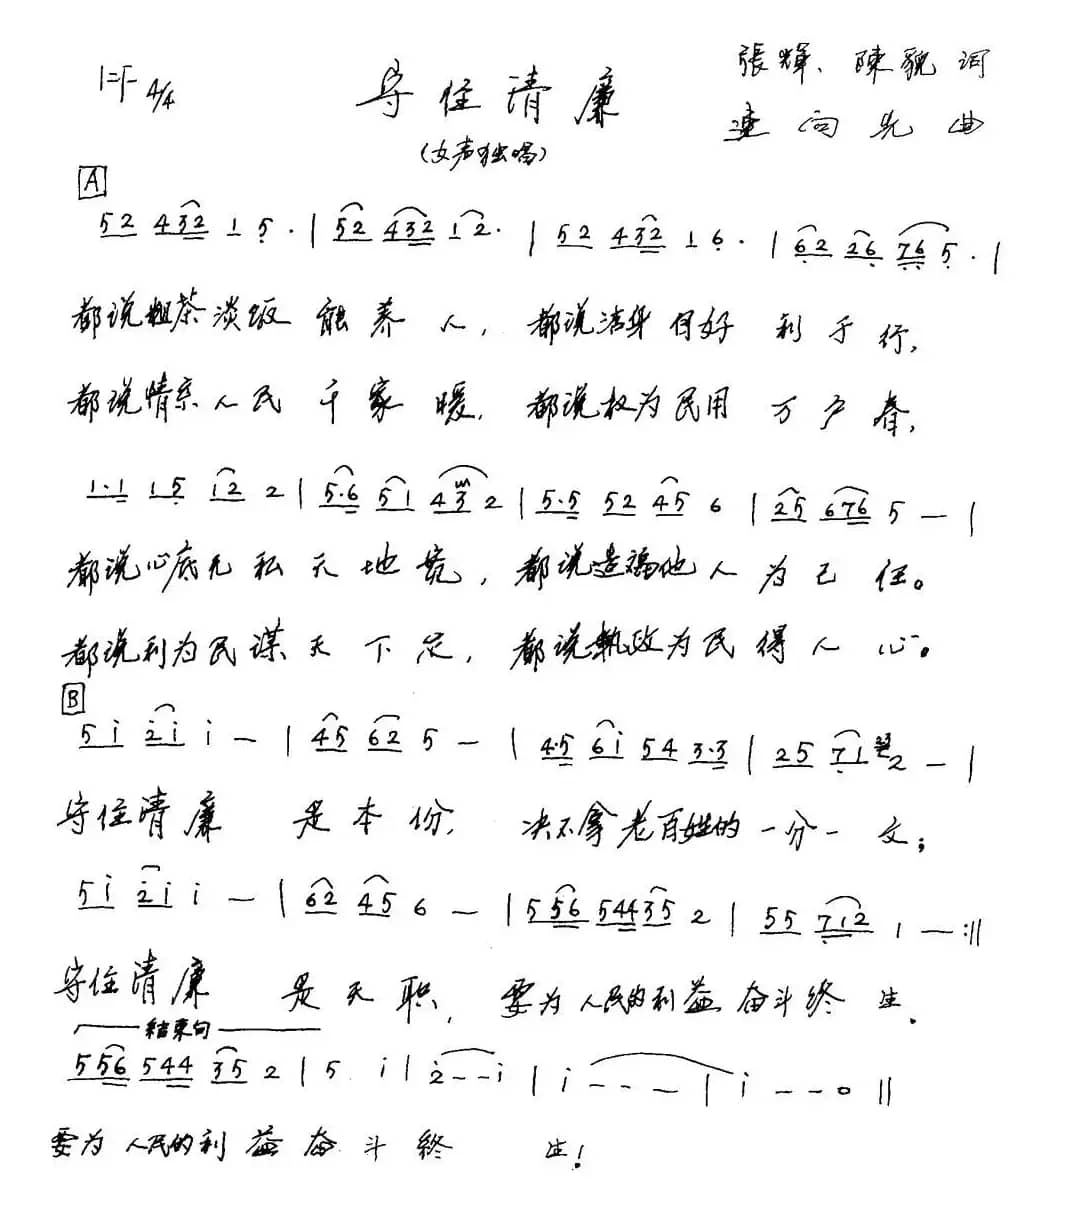 1=F 4/4
守住清廉
張輝、陳貌词
連向先曲
(女声独唱)
A
52 432 1 5· | 52 432 12· | 52 432 1 6· | 62 26 76 5· |
都说粗茶淡饭 能养人, 都说洁身 好 利于行,
都说情系人民 千家暖, 都说权为民用 万户春,
1·1 15 12 2 | 5·6 51 43 2 | 5·5 52 45 6 | 25 676 5 — |
都说心底无私天地宽, 都说造福他人为己任。
都说利为民谋天下 , 都说執政为民得人心。
B
51̇ 2̇1̇ 1̇ — | 45 62 5 — | 4·5 61̇ 54 3·3 | 25 71 2 — |
守住清廉 是本份, 决不拿老百姓的一分一文;
51̇ 2̇1̇ 1̇ — | 62 45 6 — | 556 54435 2 | 55 712 1 — :||
守住清廉 是天职, 要为人民的利益奋斗终生.
结束句
556 544 35 2 | 5 1̇ | 2̇ - - 1̇ | 1̇ - - — | 1̇ - - 0 ||
要为人民的利益奋斗終 生!